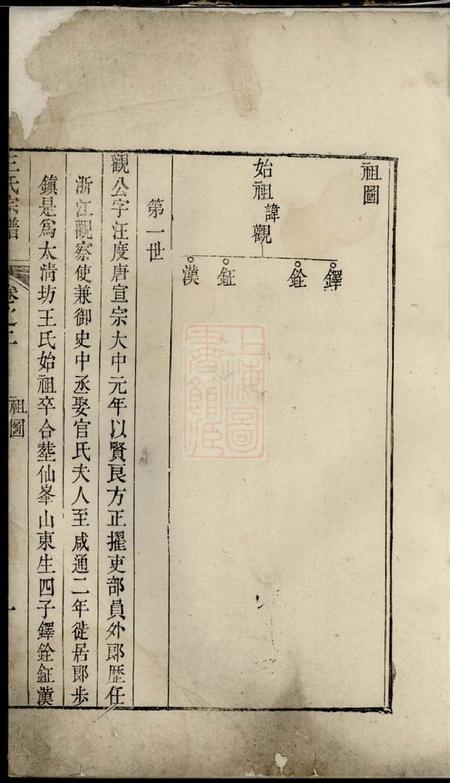 祖圖
始祖諱觀
鐸
銓
鉦
漢
第一世
觀公字汪度唐宣宗大中元年以賢良方正擢吏部員外郎歷任
浙江觀察使兼御史中丞娶官氏夫人至咸通二年徙居郎步
鎮是爲太淸坊王氏始祖卒合塟仙峯山東生四子鐸銓鉦漢
王氏宗譜
卷之二
祖圖
一
上海圖書館藏